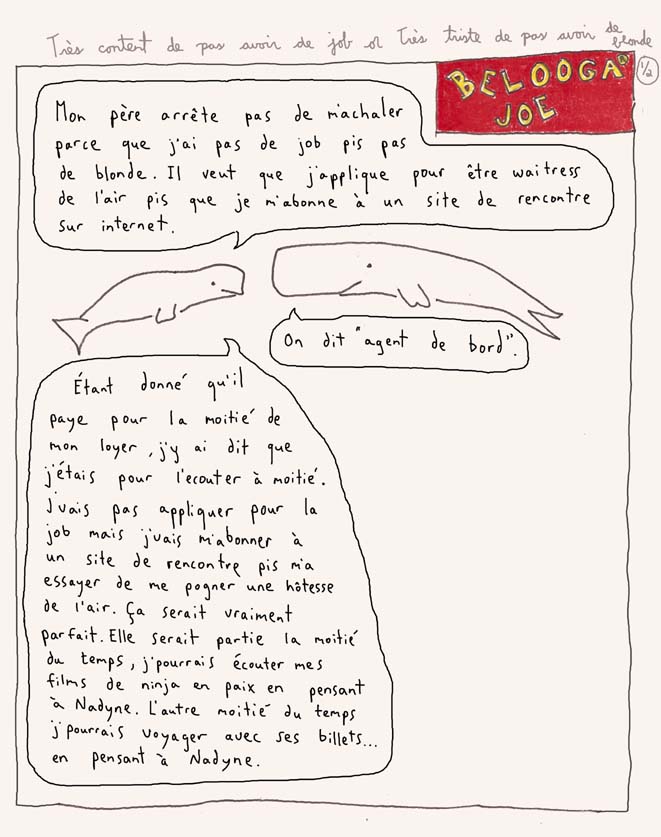 Très content de pas avoir de job or Très triste de pas avoir de blonde
BELOOGA
JOE
1/2
Mon père arrête pas de m'achaler
parce que j'ai pas de job pis pas
de blonde. Il veut que j'applique pour être waitress
de l'air pis que je m'abonne à un site de rencontre
sur internet.
On dit "agent de bord".
Étant donné qu'il
paye pour la moitié de
mon loyer, j'y ai dit que
j'étais pour l'ecouter à moitié.
J'vais pas appliquer pour la
job mais j'vais m'abonner à
un site de rencontre pis m'a
essayer de me pogner une hôtesse
de l'air. Ça serait vraiment
parfait. Elle serait partie la moitié
du temps, j'pourrais écouter mes
films de ninja en paix en pensant
à Nadyne. L'autre moitié du temps
j'pourrais voyager avec ses billets...
en pensant à Nadyne.